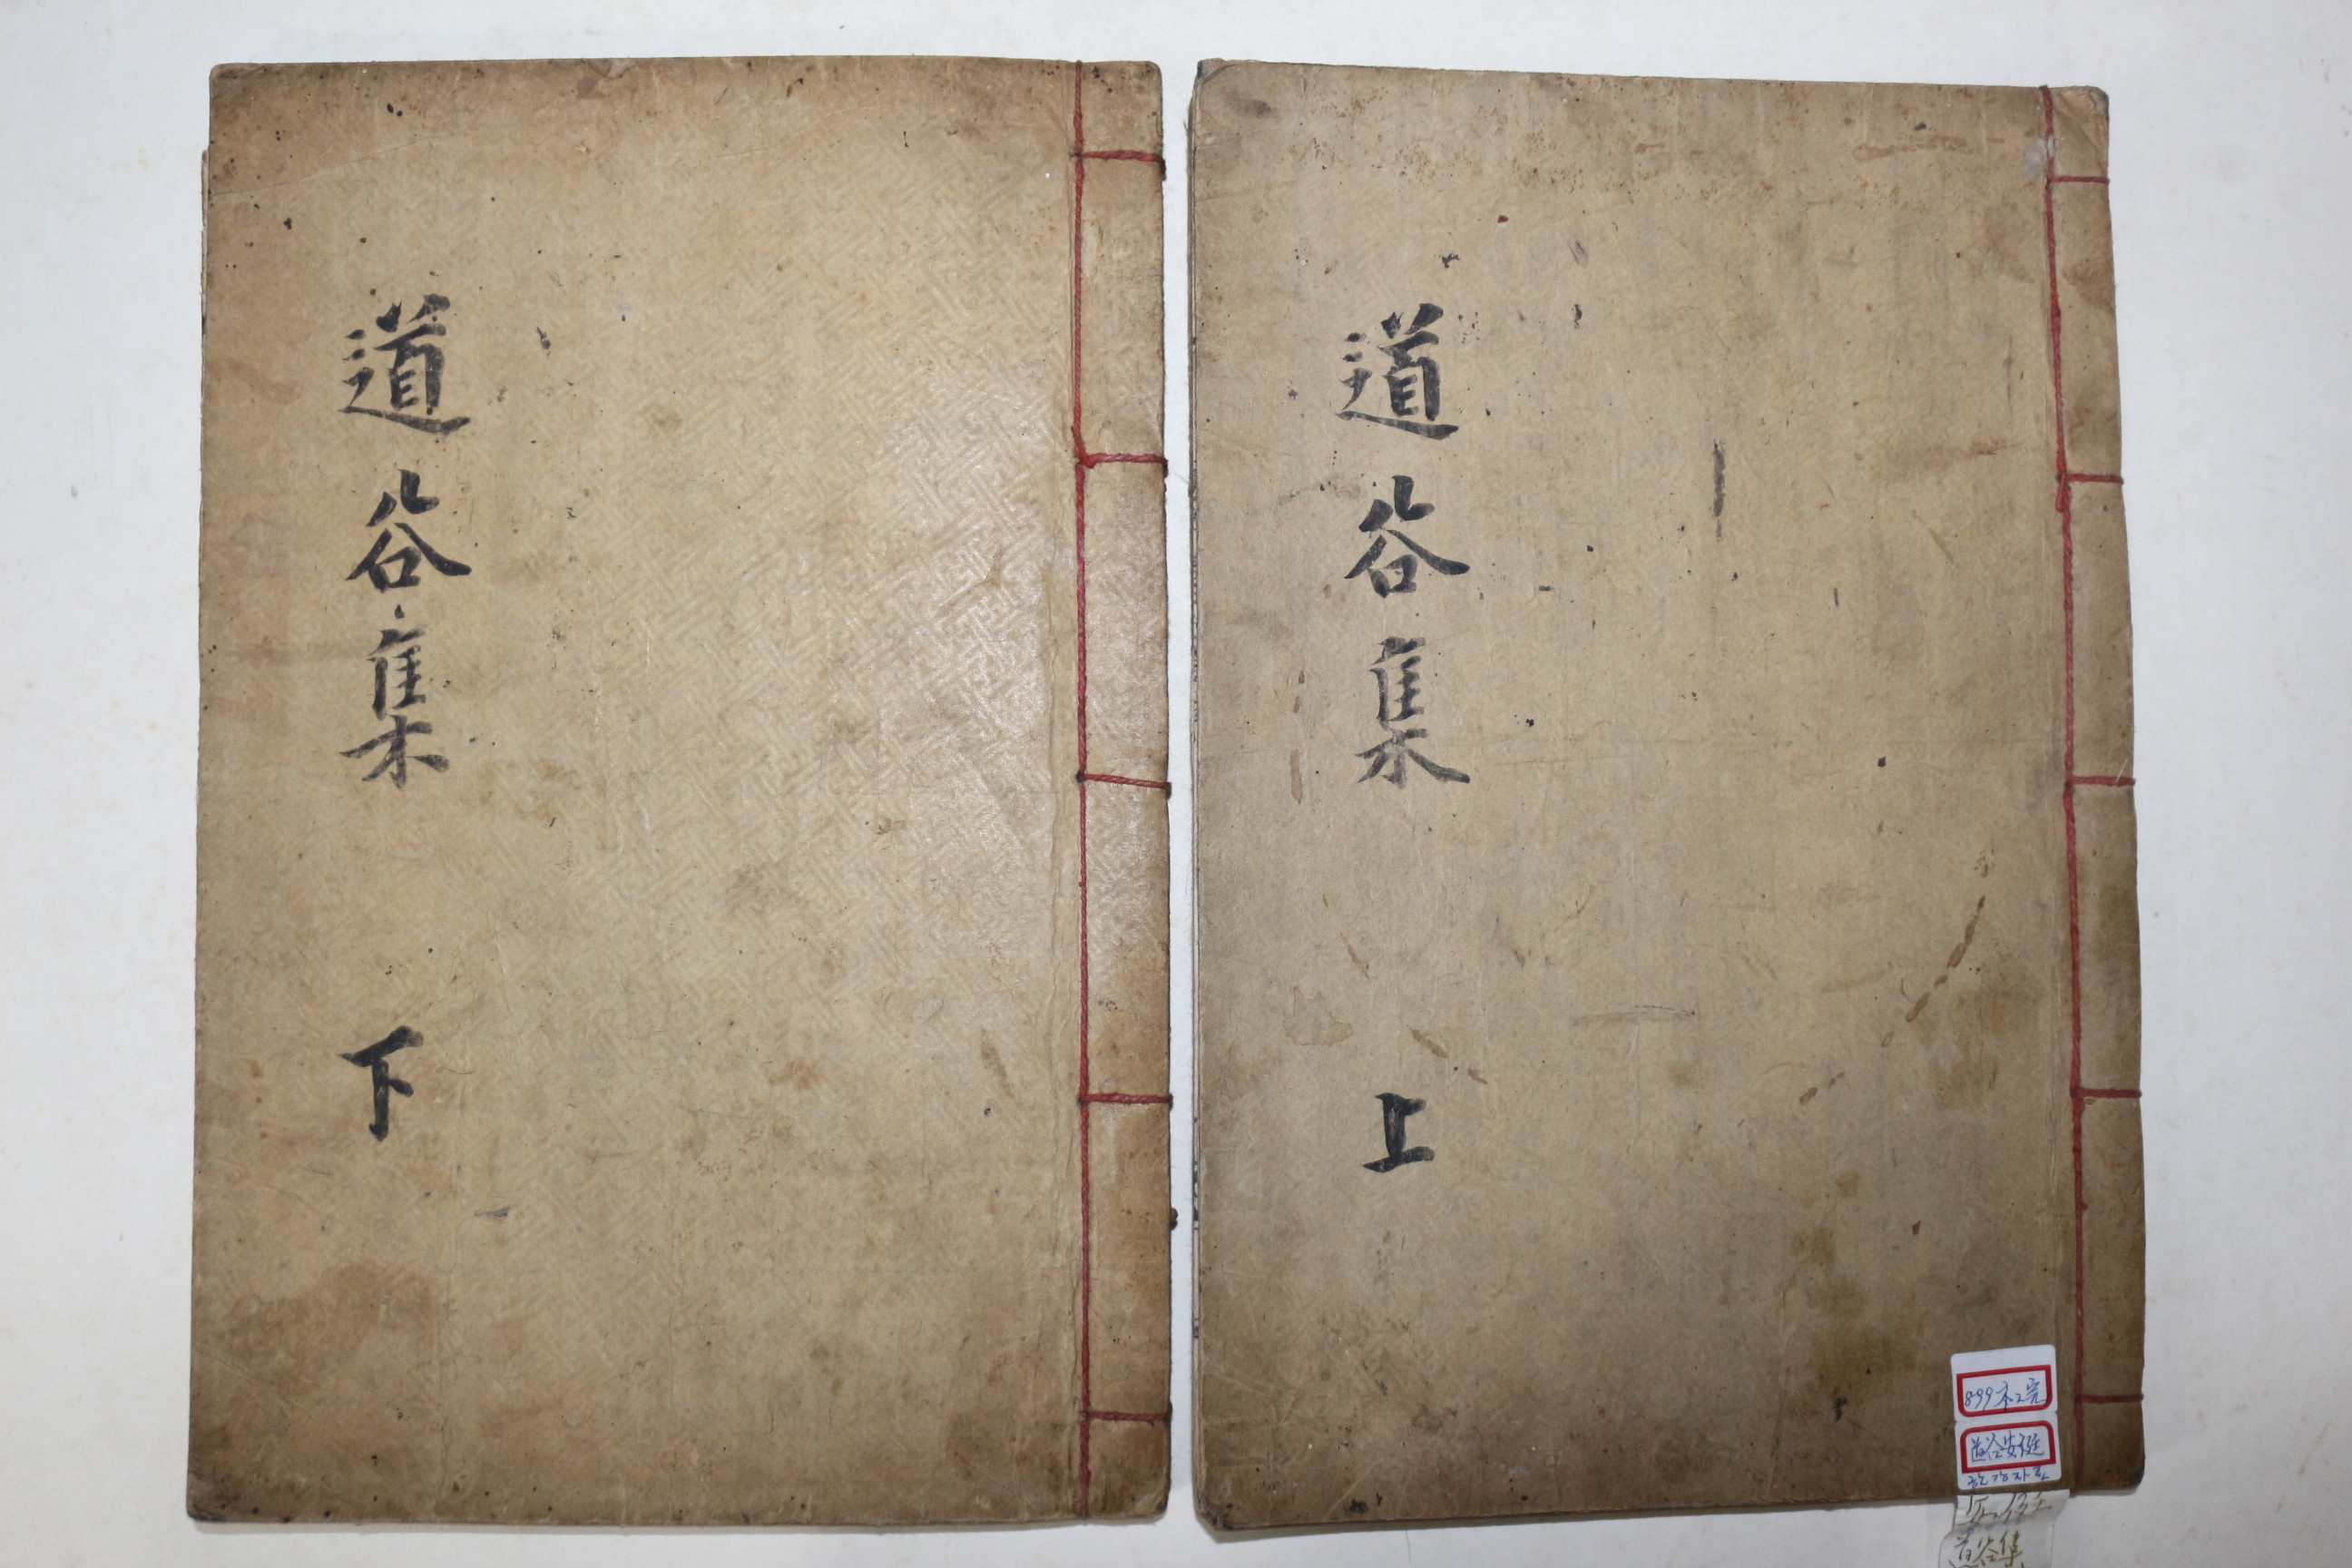 道谷集
上
道谷集
下
899 木2完
道谷安侹
道谷集